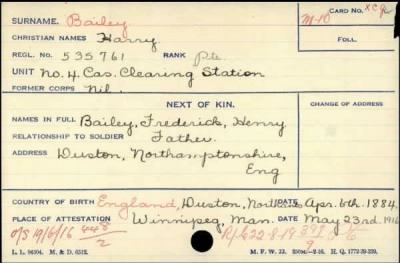 SURNAME. Bailey CARD NO. XCR
CHRISTIAN NAMES Harry M-10 FOLL.
REGL. NO. 535761 RANK Pte.
UNIT No. 4 Cas. Clearing Station
FORMER CORPS Nil.
NEXT OF KIN. CHANGE OF ADDRESS
NAMES IN FULL Bailey, Frederick, Henry
RELATIONSHIP TO SOLDIER Father.
ADDRESS Duston, Northamptonshire,
Eng
COUNTRY OF BIRTH England, Duston, DATE Apr. 6th. 1884
PLACE OF ATTESTATION Winnipeg, Man. DATE May 23rd. 1916
O/S 19/6/16 448/2 22-8-19
L. L. M. & D. M. F. W. 22. H. Q. 1772-39-339.